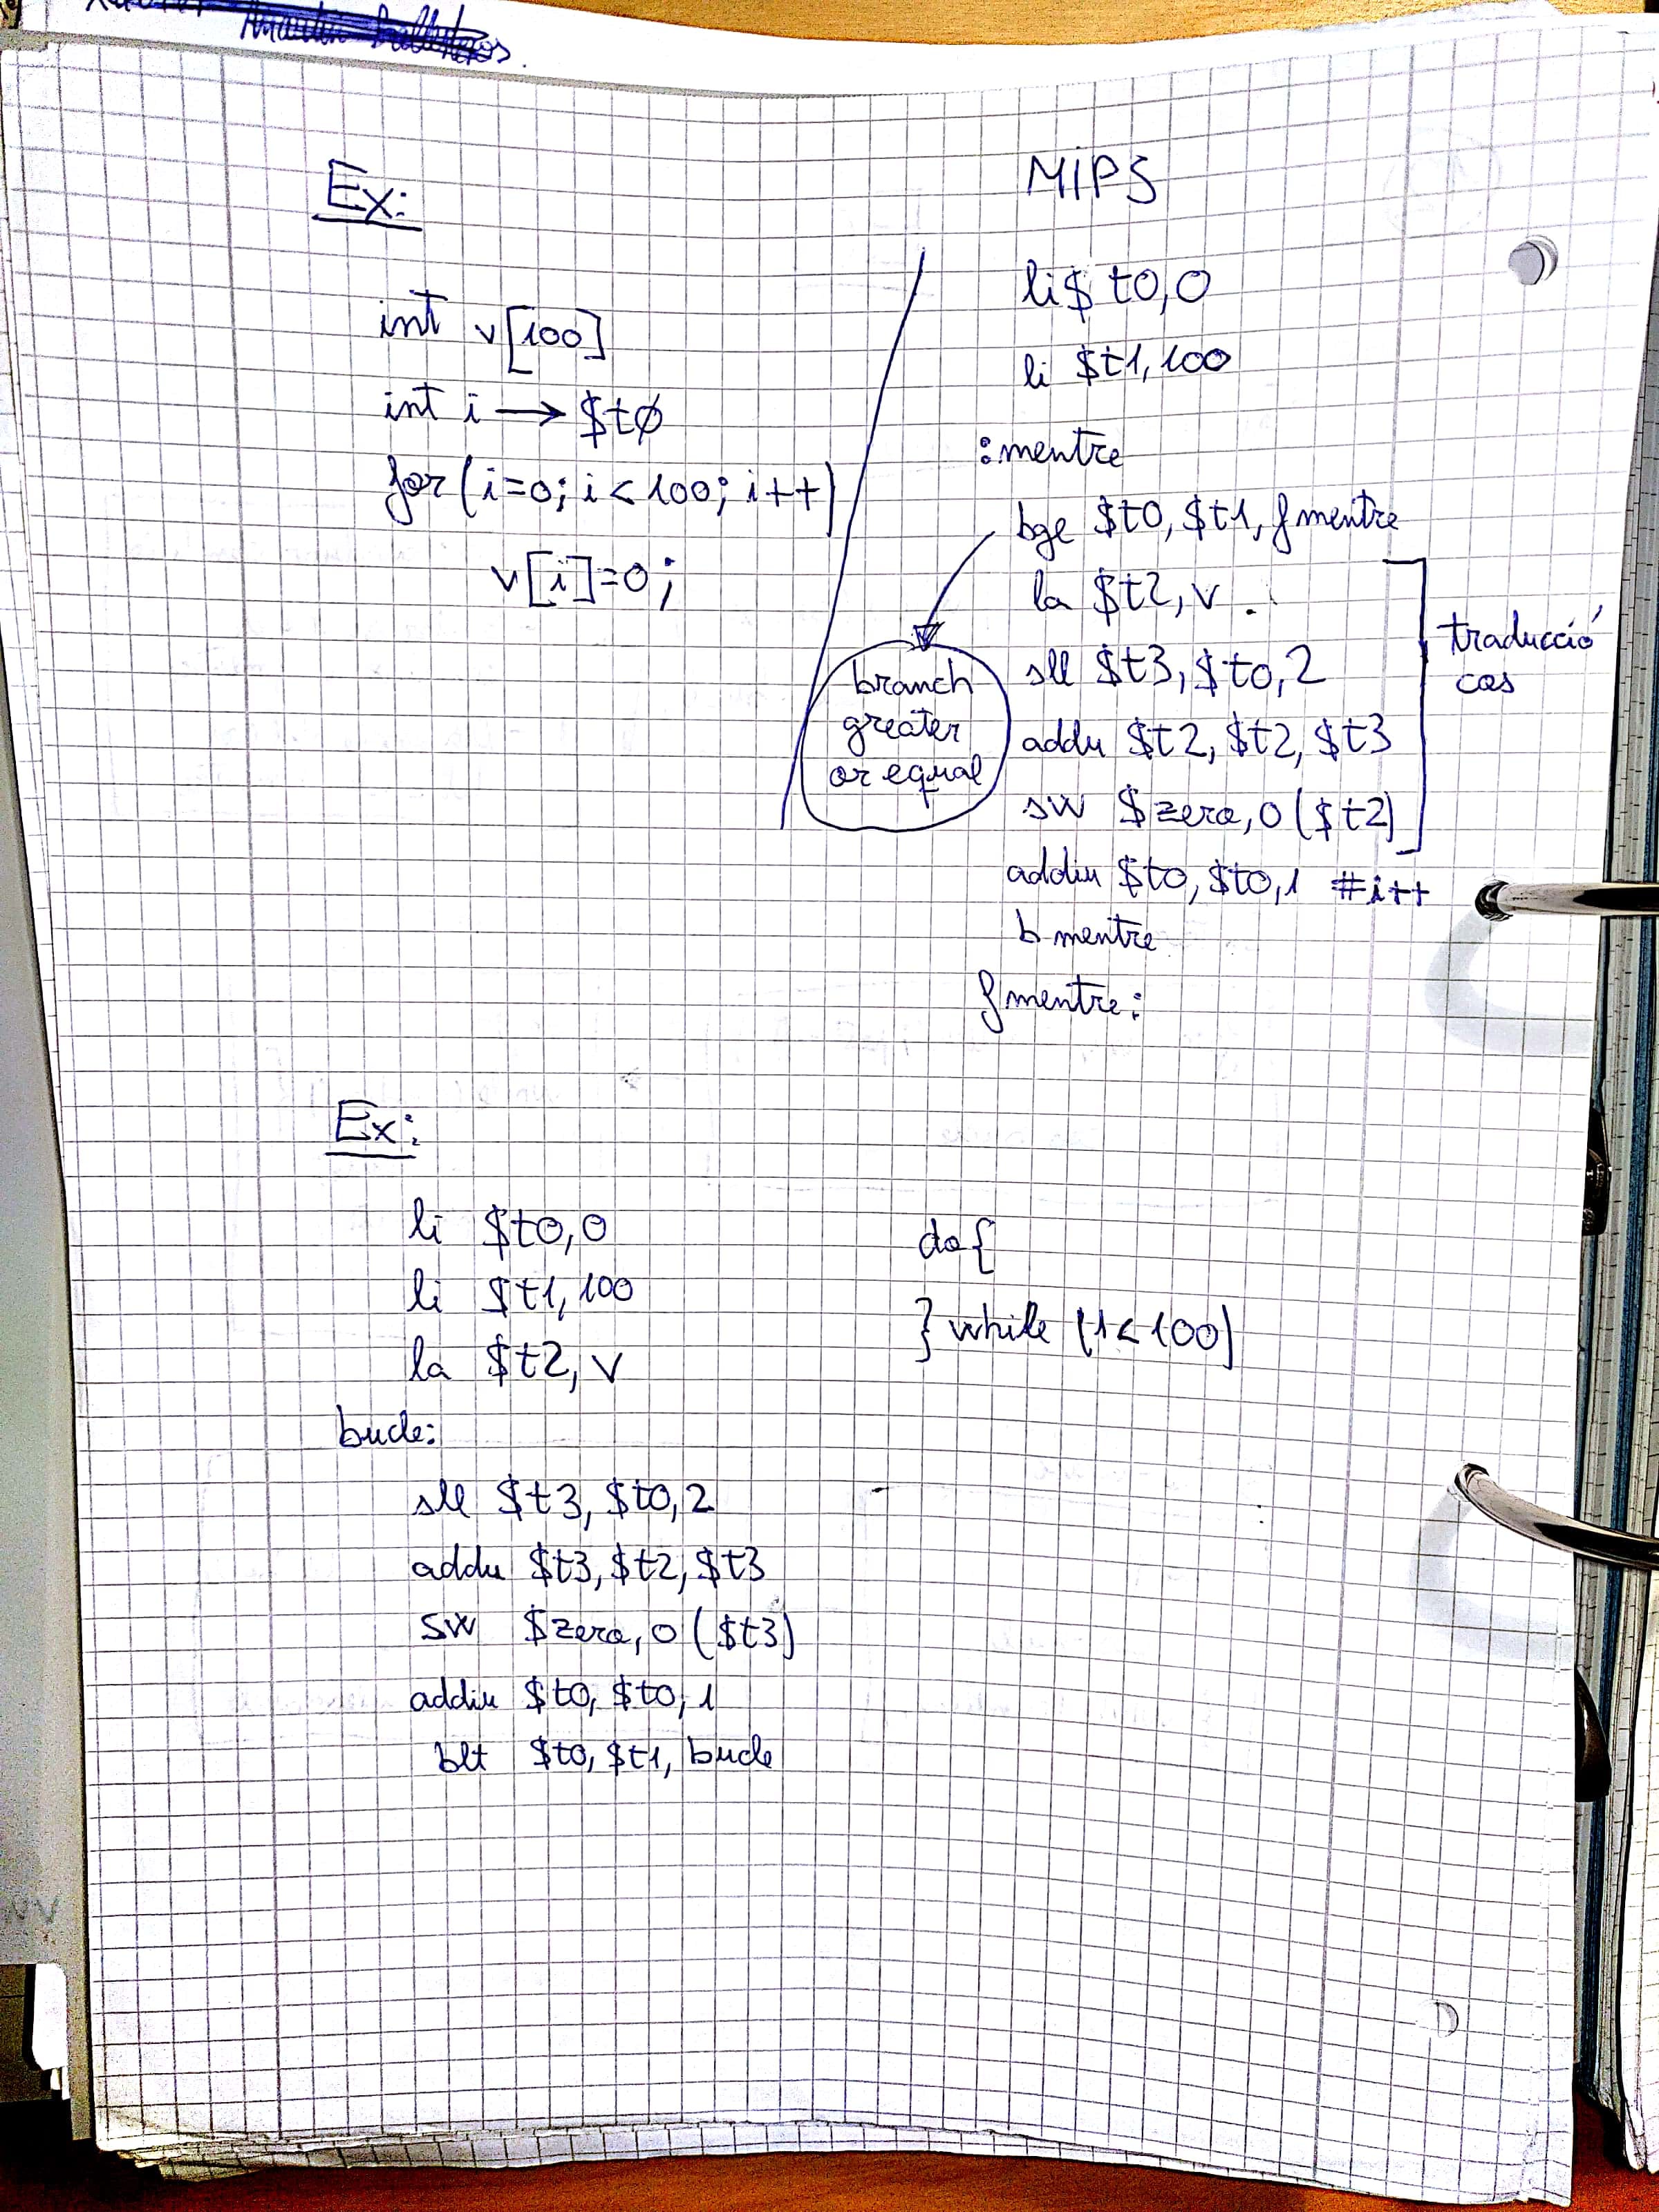 Ex:
int v[100]
int i → $tØ
for(i=0; i<100; i++)
v[i]=0;
MIPS
li$ t0,0
li $t1,100
:mentre
bge $t0, $t1, fmentre
la $t2, v
sll $t3, $t0, 2
addu $t2, $t2, $t3
sw $zero, 0($t2)
addiu $t0, $t0, 1 #i++
b mentre
fmentre:
branch
greater
or equal
traducció
cos
Ex:
li $t0,0
li $t1,100
la $t2, v
bucle:
sll $t3, $t0, 2
addu $t3, $t2, $t3
sw $zero, 0($t3)
addiu $t0, $t0, 1
blt $t0, $t1, bucle
do{
} while (1<100)